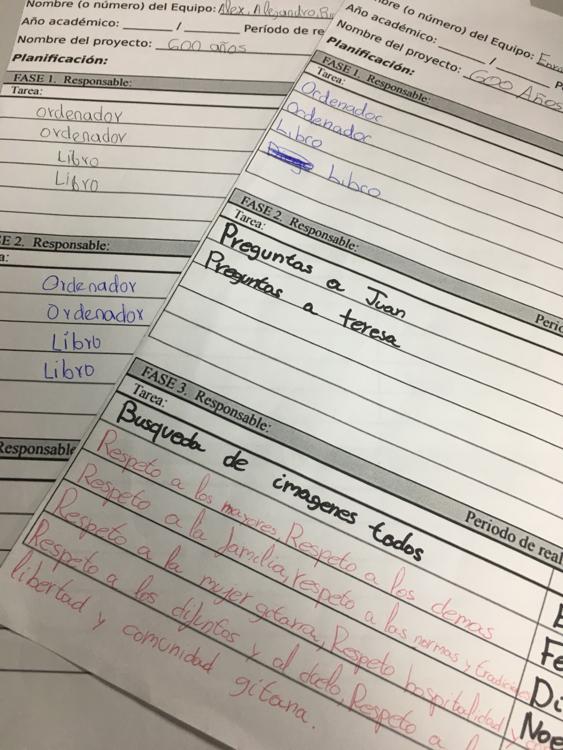 Nombre (o número) del Equipo: Alex, Alejandro,
Año académico: / Período de re
Nombre del proyecto: 600 años
Planificación:
FASE 1. Responsable:
Tarea:
ordenador
ordenador
Libro
Libro
E 2. Responsable:
a:
Ordenador
Ordenador
Libro
Libro
Responsable
bre (o número) del Equipo:
Año académico: /
Nombre del proyecto: 600 Años
Planificación:
FASE 1. Responsable:
Tarea:
Ordenador
Ordenador
Libro
Libro
FASE 2. Responsable:
Tarea: Perio
Preguntas a Juan
Preguntas a teresa
FASE 3. Responsable:
Tarea: Periodo de real
Busqueda de imagenes todos
Respeto a los mayores, Respeto a los demas
Respeto a la familia, respeto a las normas y tradicio
Respeto a la mujer gitana, Respeto hospitalidad y
Respeto a los difuntos y al duelo, Respeto a l
libertad y comunidad gitana.
Fe
Di
Noe